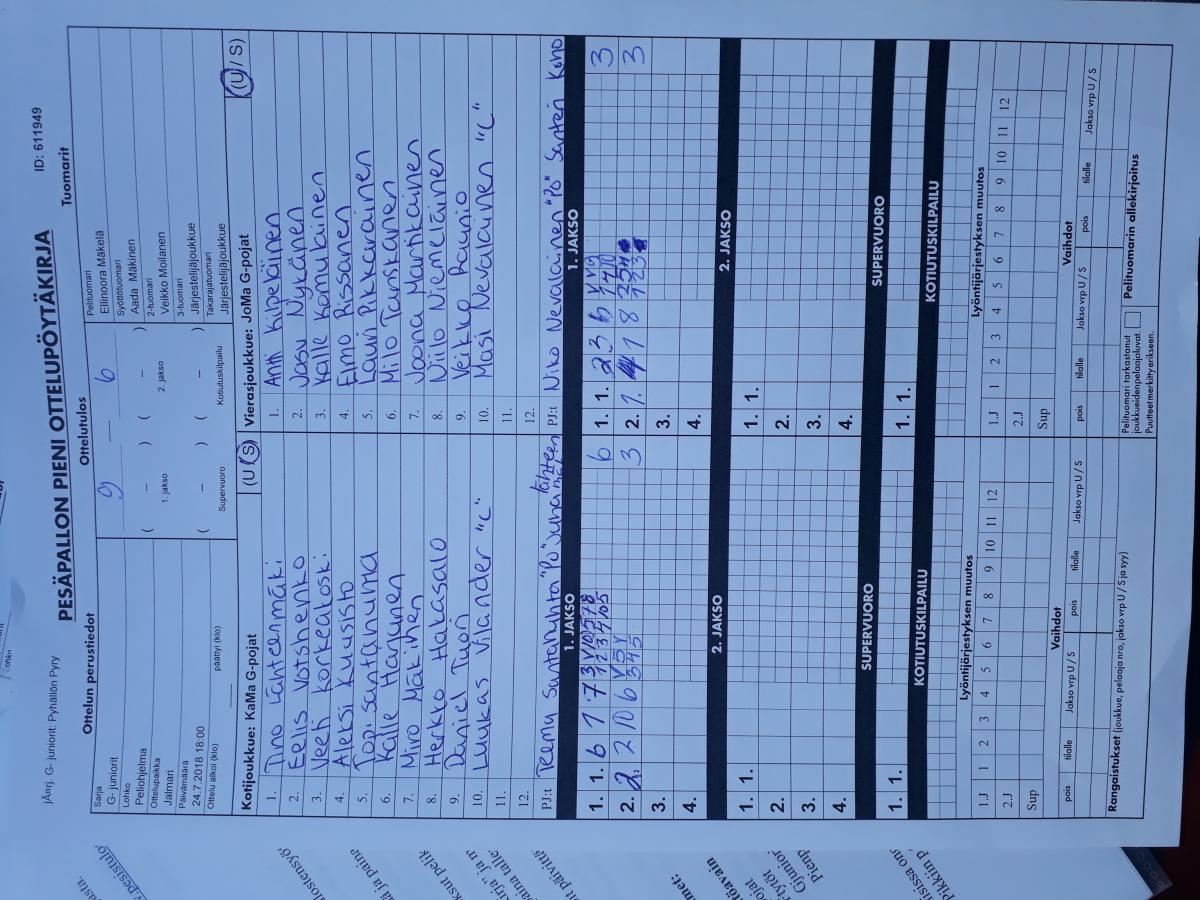 jÄrrj. G- juniorit: Pyhällön Pyry
PESÄPALLON PIENI OTTELUPÖYTÄKIRJA
ID: 611949
Ottelun perustiedot
Sarja
G- juniorit
Lohko
Peliohjelma
Ottelupaikka
Jalmari
Päivämäärä
24.7.2018 18:00
Ottelu alkoi (klo)
päättyi (klo)
Ottelutulos
9 — 6
( – ) ( – )
1. jakso 2. jakso
( – ) ( – )
Supervuoro Kotiutuskilpailu
Tuomarit
Pelituomari
Ellinoora Mäkelä
Syöttötuomari
Aada Mäkinen
2-tuomari
Veikko Moilanen
3-tuomari
Järjestelijäjoukkue
Takarajatuomari
Järjestelijäjoukkue
Kotijoukkue: KaMa G-pojat (U / S)
1. Tino Lähteenmäki
2. Eelis Votshenko
3. Veeti Korkealaski
4. Aleksi Kuusisto
5. Topi Santahuhma
6. Kalle Harjunen
7. Miro Mäkinen
8. Herkko Hakasalo
9. Daniel Tuori
10. Luukas Vilander "L"
11.
12.
PJ:t Teemu Santahuhta "PJ" Juha Lähteenmäki
Vierasjoukkue: JoMa G-pojat (U / S)
1. Antti Kipeläinen
2. Jasu Nykänen
3. Kalle Komulainen
4. Elmo Rissanen
5. Lauri Pikkarainen
6. Milo Tanskanen
7. Joona Martikainen
8. Niilo Niemeläinen
9. Veikko Raunio
10. Masi Nevalainen "L"
11.
12.
PJ:t Niko Nevalainen "PJ" Santeri Kono
1. JAKSO
1. 1. 6 1 7 6
2. 2. 2 10 6 3
3.
4.
1. JAKSO
1. 1. 2 3 6 3
2. 1. 1 8 3
3.
4.
2. JAKSO
1. 1.
2.
3.
4.
2. JAKSO
1. 1.
2.
3.
4.
SUPERVUORO
1. 1.
SUPERVUORO
1. 1.
KOTIUTUSKILPAILU
KOTIUTUSKILPAILU
Lyöntijärjestyksen muutos
1.J 1 2 3 4 5 6 7 8 9 10 11 12
2.J
Sup
Lyöntijärjestyksen muutos
1.J 1 2 3 4 5 6 7 8 9 10 11 12
2.J
Sup
Vaihdot
pois tilalle Jakso vrp U / S pois tilalle Jakso vrp U / S
Vaihdot
pois tilalle Jakso vrp U / S pois tilalle Jakso vrp U / S
Rangaistukset (joukkue, pelaaja nro, jakso vrp U / S ja syy)
Pelituomari tarkastanut
joukkueidenpelaajaluvat.
Puutteet merkitty erikseen.
Pelituomarin allekirjoitus